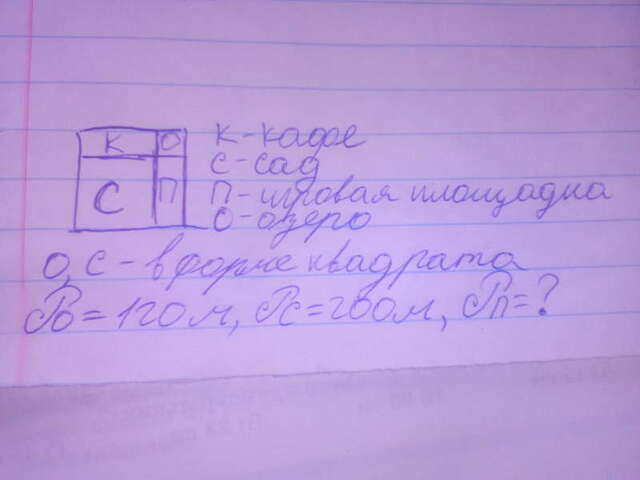 К О
С П
К-кафе
С-сад
П-игровая площадка
О-озеро
О, С - в форме квадрата
Pо = 120 м, Pс = 200 м, Pп = ?